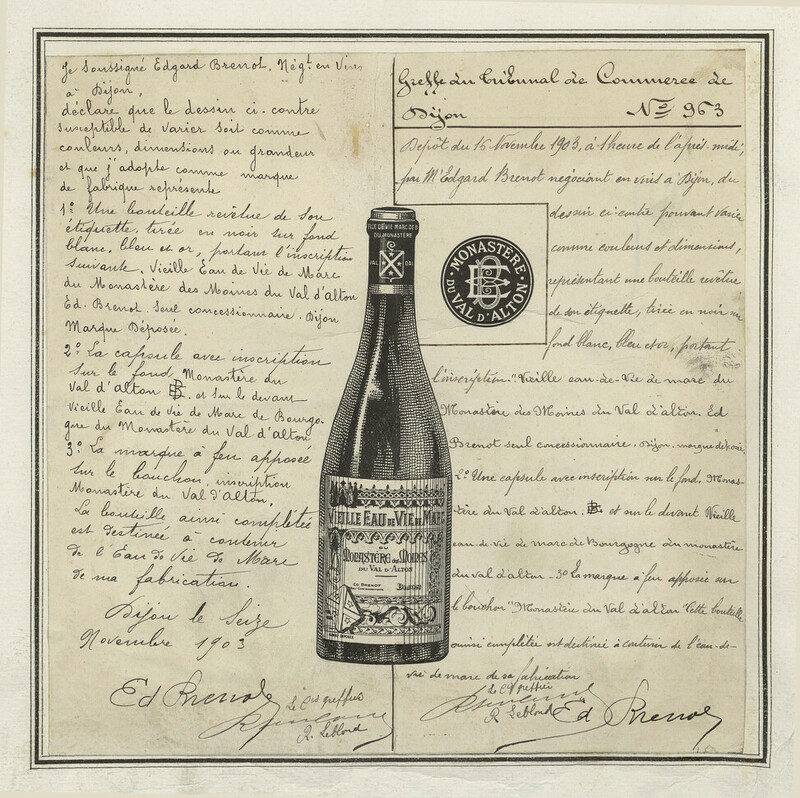 Je Soussigné Edgard Brenot, Négt en Vins
à Dijon,
déclare que le dessin ci-contre
susceptible de varier soit comme
couleurs, dimensions ou grandeur
et que j'adopte comme marque
de fabrique représente
1º Une bouteille revêtue de son
étiquette, tirée en noir sur fond
blanc, bleu et or, portant l'inscription
suivante. Vieille Eau de Vie de Marc
du Monastère des Moines du Val d'alton
Ed. Brenot Seul concessionnaire. Dijon
Marque Déposée.
2º La capsule avec inscription
sur le fond Monastère du
Val d'alton EB. et sur le devant
Vieille Eau de Vie de Marc de Bourgo-
gne du Monastère du Val d'alton
3º La marque à feu apposée
sur le bouchon, inscription
Monastère du Val d'alton.
La bouteille ainsi complétée
est destinée à contenir
de l'Eau de Vie de Marc
de ma fabrication.
Dijon le Seize
Novembre 1903
Ed Brenot
Le Cis greffier
R. Leblond
Greffe du Tribunal de Commerce de
Dijon Nº 963
Dépôt du 16 Novembre 1903, à 1 heure de l'après-midi,
par Mr Edgard Brenot négociant en vins à Dijon, du
dessin ci-contre pouvant varier
comme couleurs et dimensions,
représentant une bouteille revêtue
de son étiquette, tirée en noir sur
fond blanc, bleu et or, portant
l'inscription "Vieille eau-de-Vie de marc du
Monastère des Moines du Val d'alton. Ed
Brenot seul concessionnaire. Dijon. marque déposée.
2º Une capsule avec inscription sur le fond. Monas-
tère du Val d'alton. EB et sur le devant Vieille
eau-de-vie de marc de Bourgogne du monastère
du val d'alton - 3º La marque à feu apposée sur
le bouchon "Monastère du Val d'alton Cette bouteille
ainsi complétée est destinée à contenir de l'eau-de-
vie de marc de sa fabrication
Le Cis greffier
R. Leblond
Ed Brenot
MONASTÈRE
DU VAL D'ALTON
EB
ELLE EAU DE VIE MARC DE B
DU MONASTÈRE
VAL
VIEILLE EAU DE VIE DE MARC
DU
MONASTÈRE DES MOINES
DU VAL D'ALTON
ED. BRENOT
DIJON